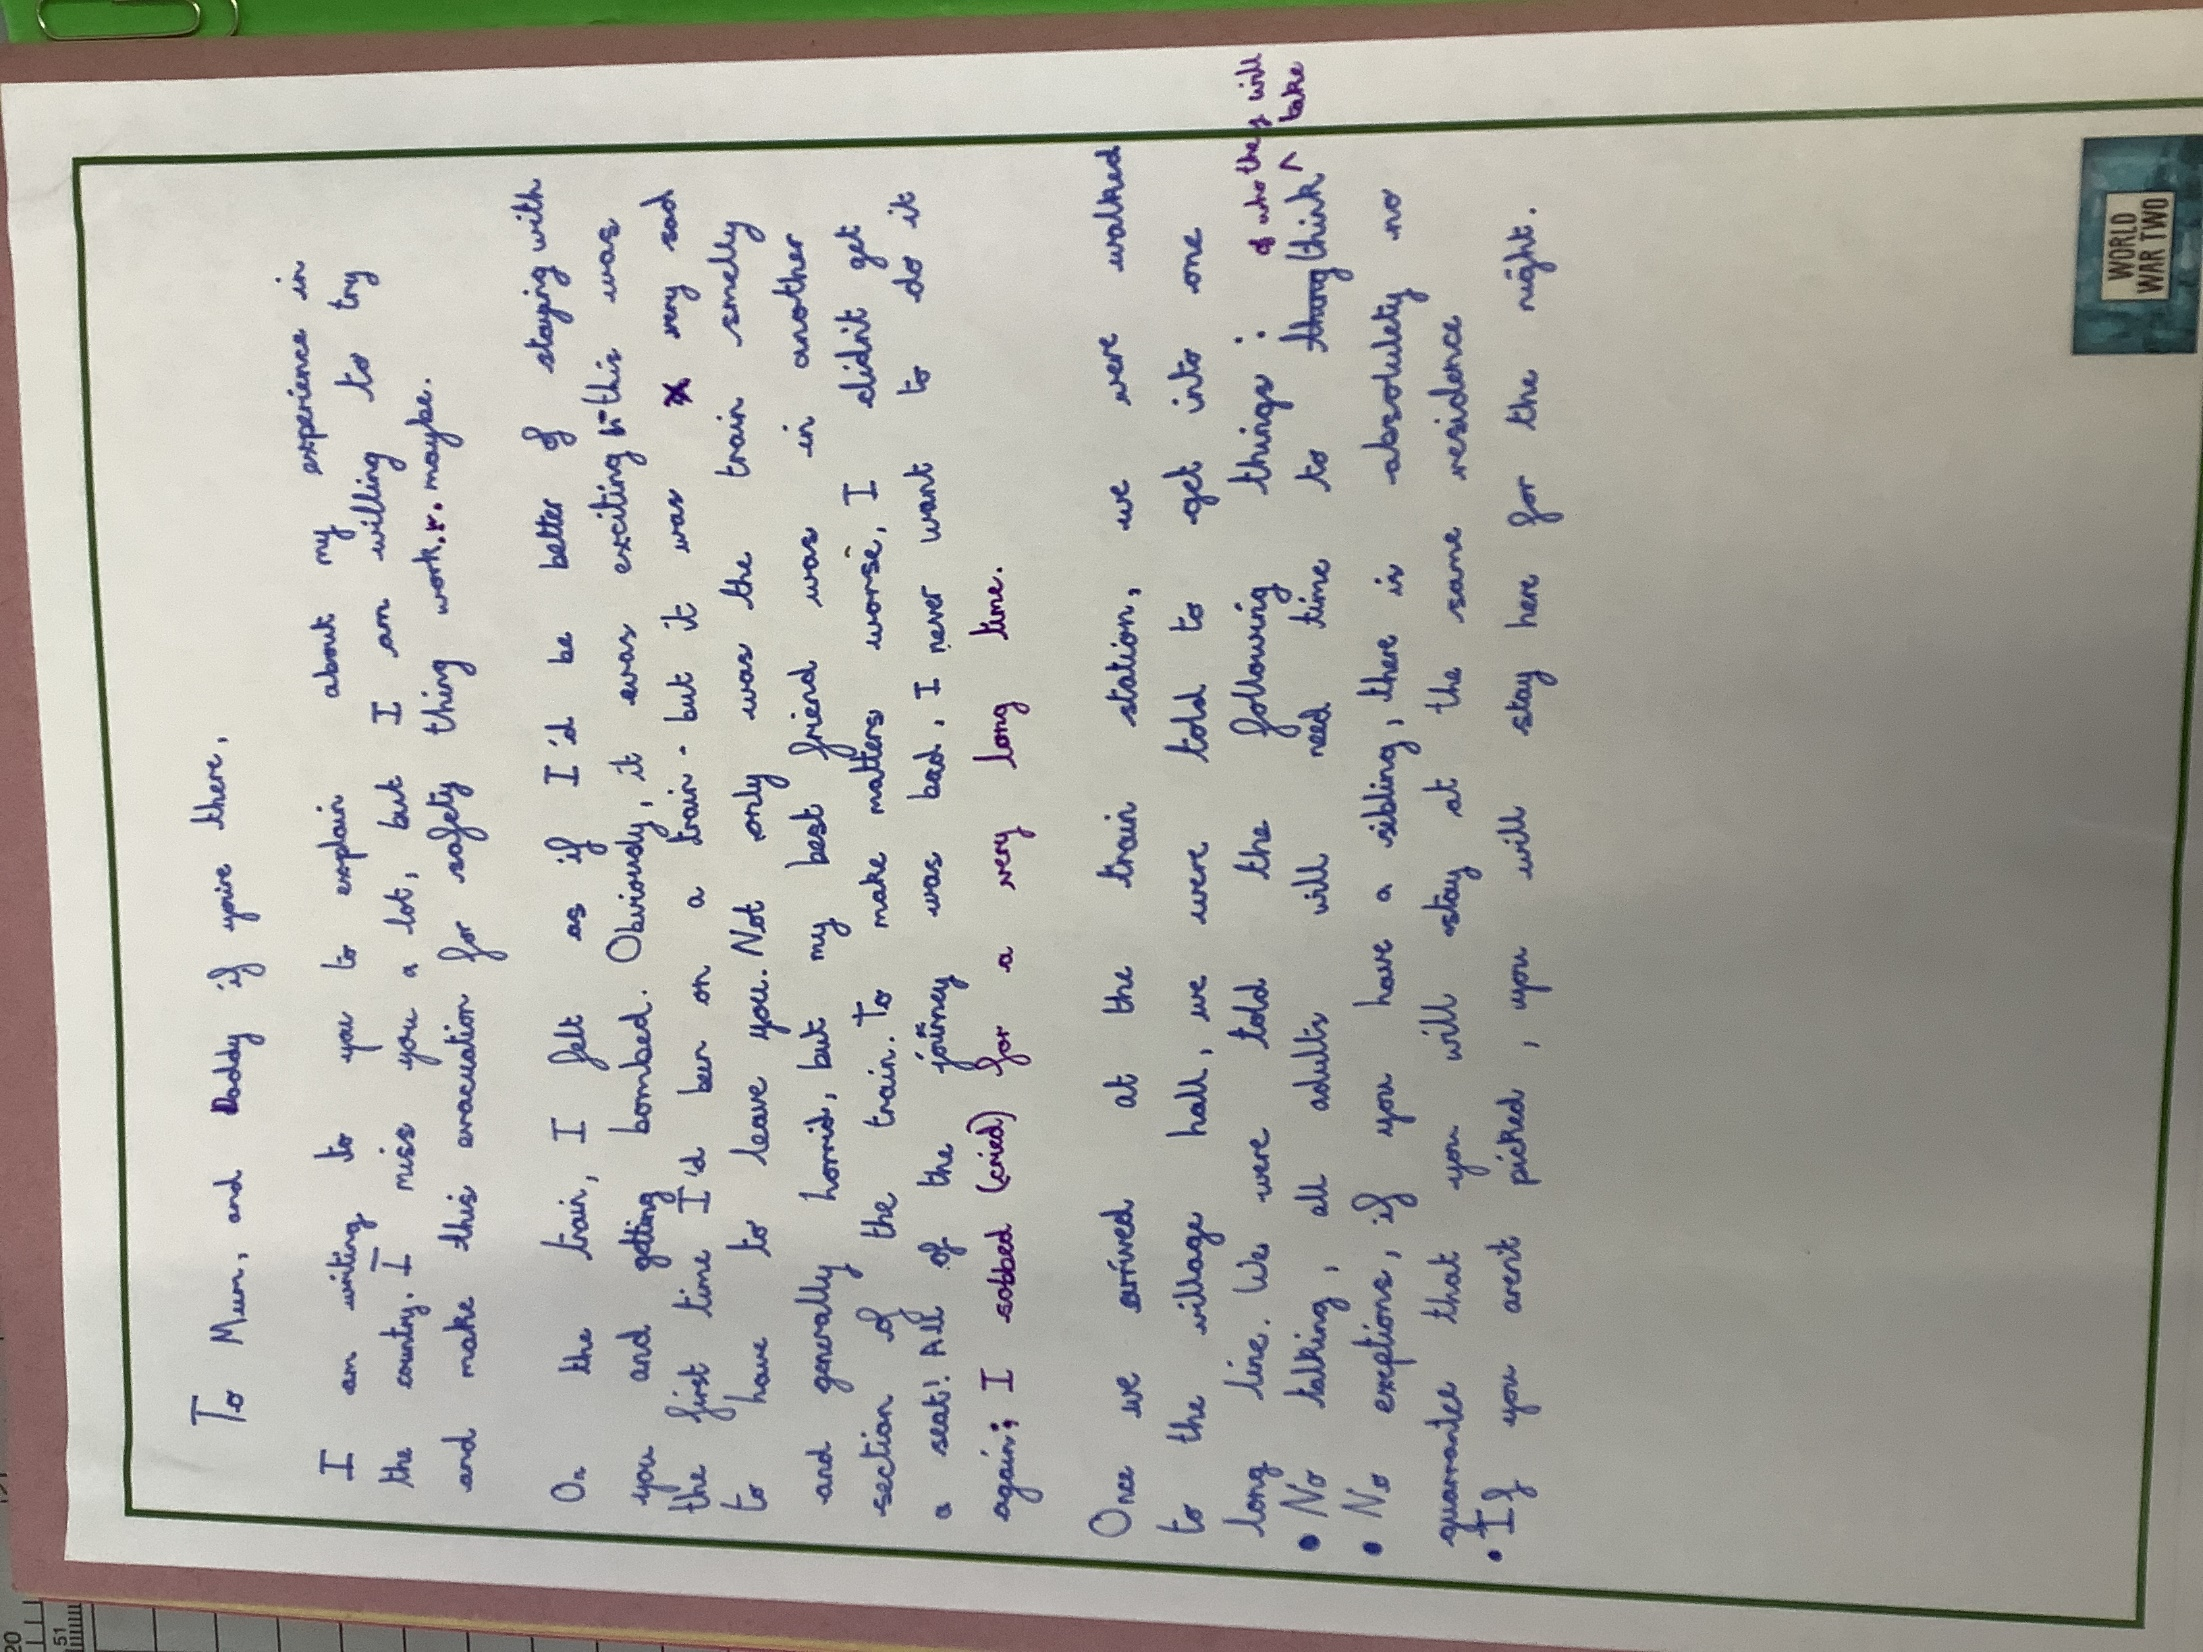 To Mum, and Daddy if you're there,
I am writing to you to explain about my experience in
the country. I miss you a lot, but I am willing to try
and make this evacuation for safety thing work... maybe.
On the train, I felt as if I'd be better of staying with
you and getting bombed. Obviously, it was exciting - this was
the first time I'd been on a train - but it was very sad
to have to leave you. Not only was the train smelly
and generally horrid, but my best friend was in another
section of the train. To make matters worse, I didn't get
a seat! All of the journey was bad, I never want to do it
again; I sobbed (cried) for a very long time.
Once we arrived at the train station, we were walked
to the village hall, we were told to get into one
long line. We were told the following things:
• No talking, all adults will need time to think of who they will take
• No exeptions, if you have a sibling, there is absolutety no
quarrantee that you will stay at the same residence
• If you arent picked, you will stay here for the night.
WORLD
WAR TWO